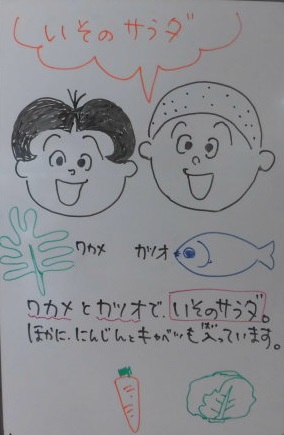 いそのサラダ
ワカメ
カツオ
ワカメとカツオで、いそのサラダ。
ほかに、にんじんとキャベツも入っています。